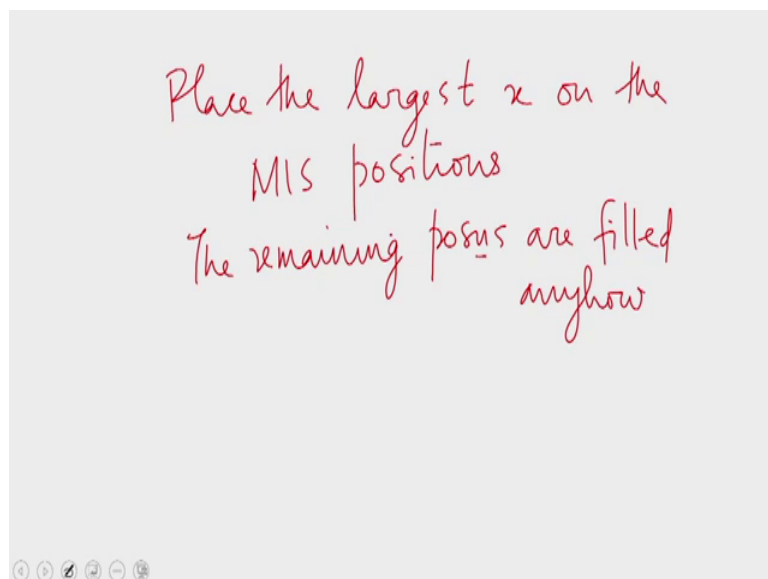 Place the largest x on the
MIS positions
The remaining posns are filled
anyhow